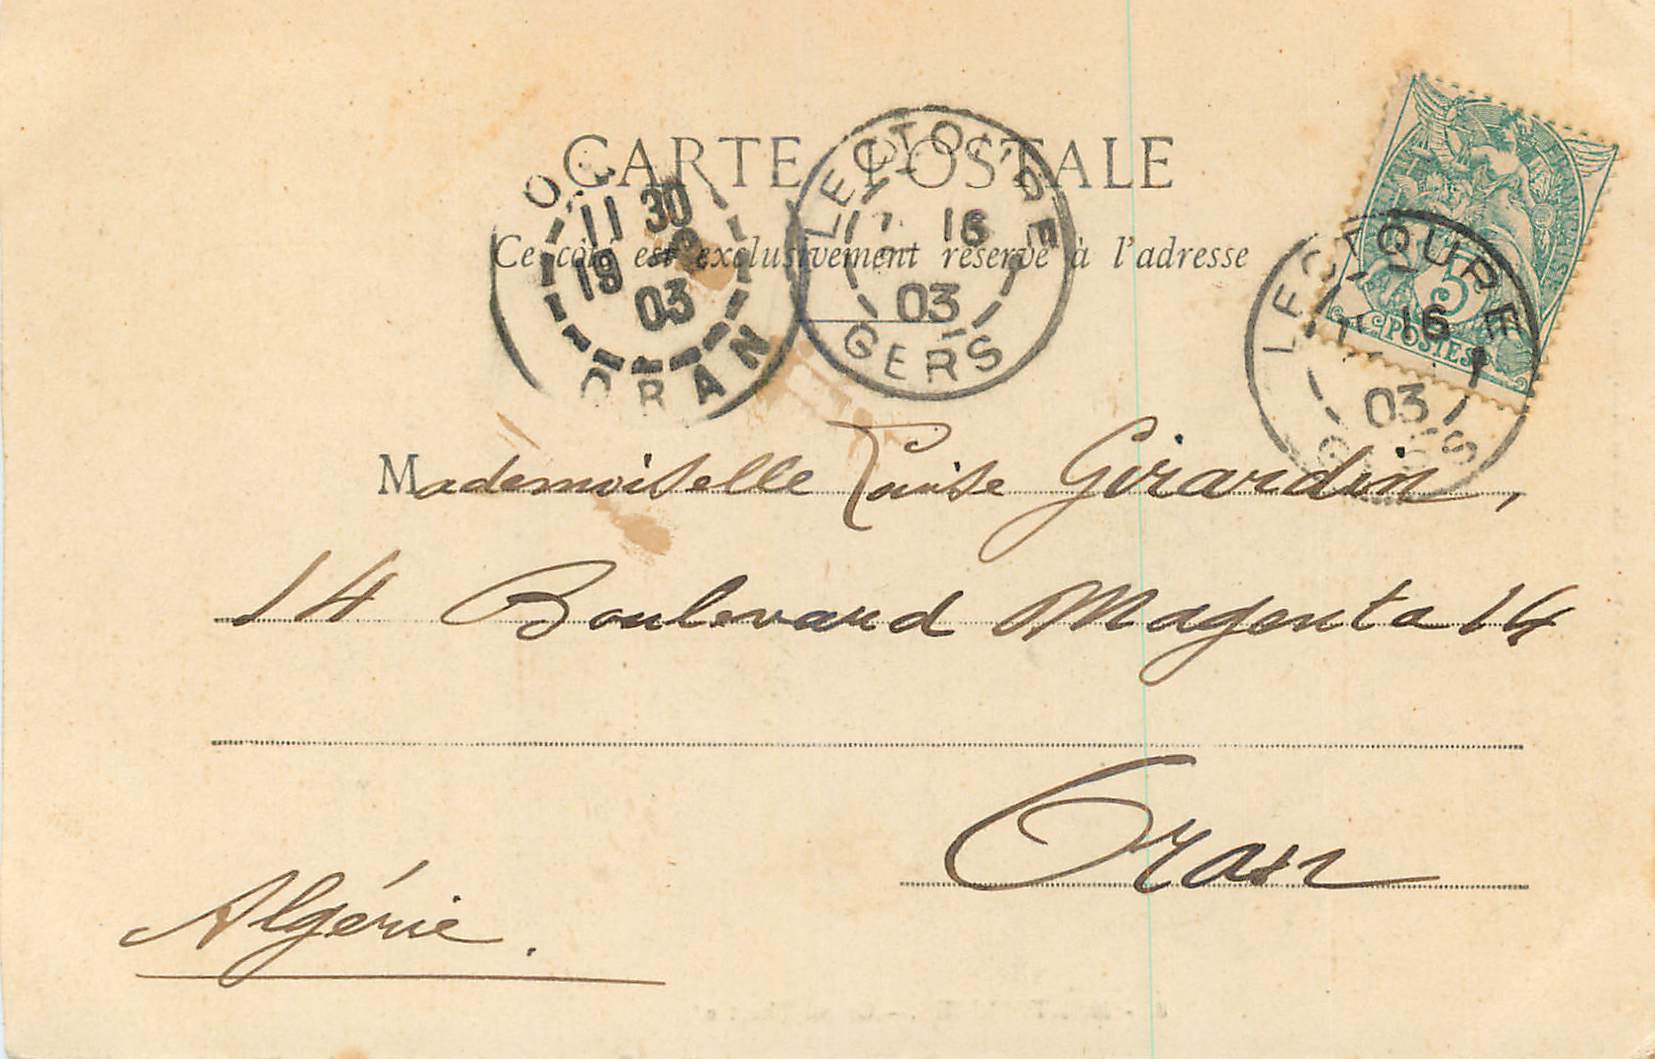 CARTE POSTALE
Ce côté est exclusivement réservé à l'adresse
11 30
19
03
ORAN
LECTOURE
16
03
GERS
5
POSTES
LECTOURE
16
03
Mademoiselle Louise Girardin,
14 Boulevard Magenta 14
Oran
Algérie.